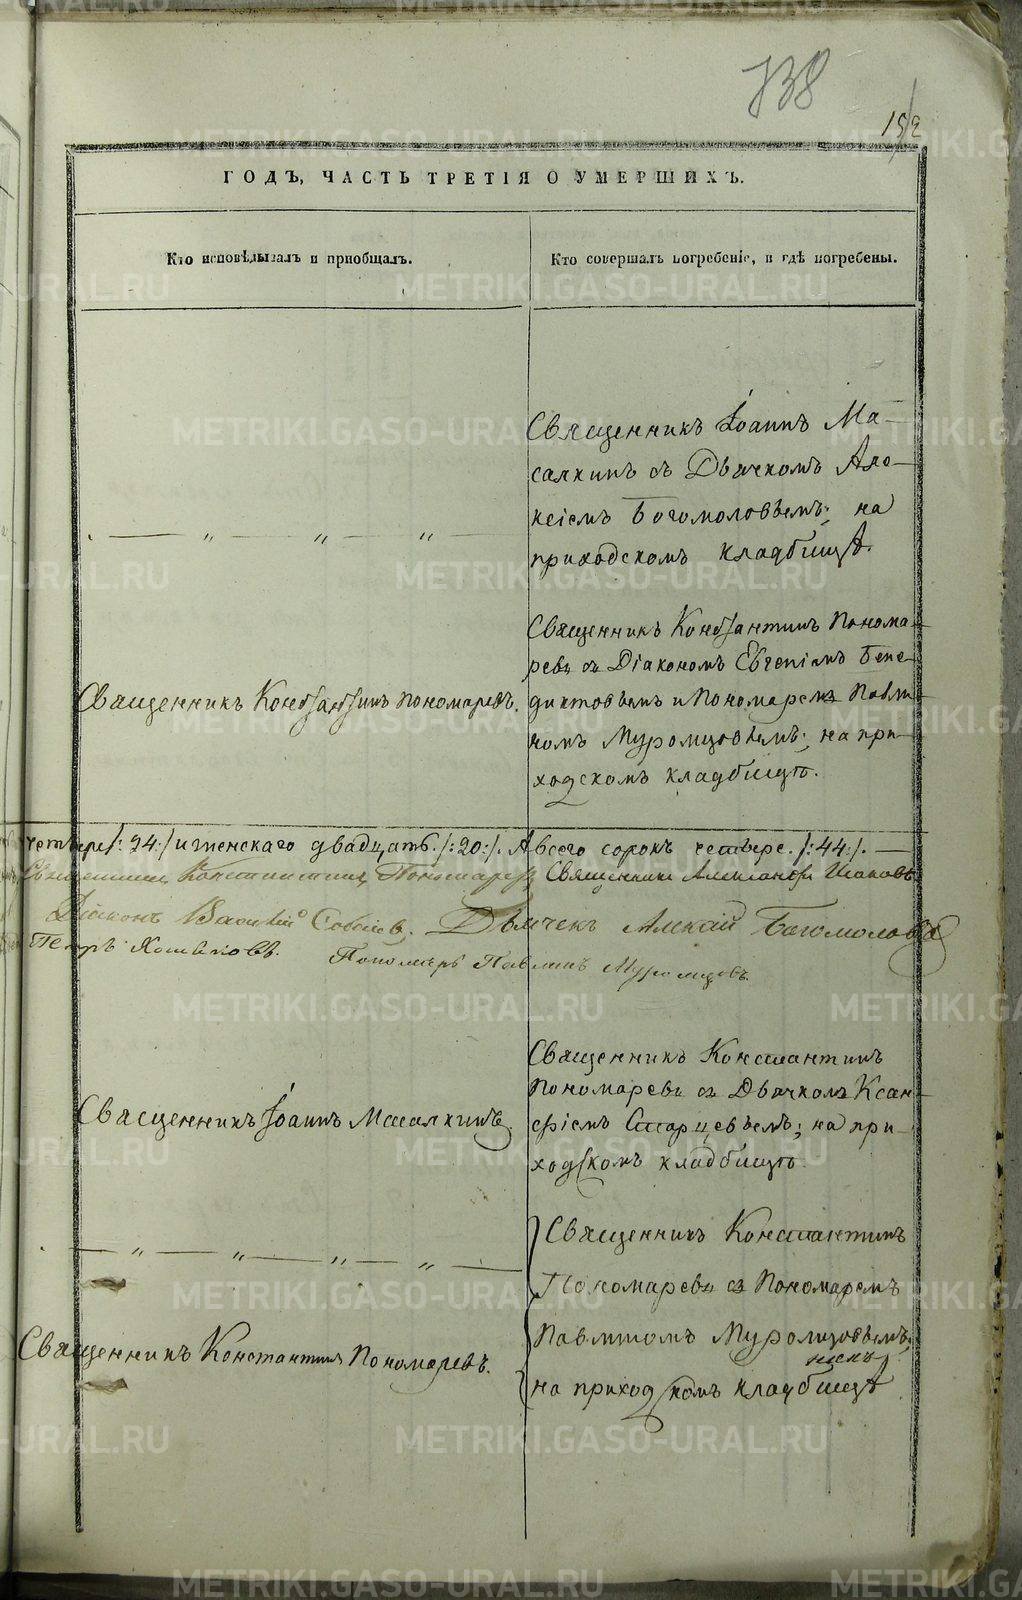 738
152
ГОДЪ, ЧАСТЬ ТРЕТІЯ О УМЕРШИХЪ.
Кто исповѣдывалъ и пріобщалъ.
Кто совершалъ погребеніе, и гдѣ погребены.
Священникъ Іоаннъ Ма-
салкинъ съ Дьячкомъ Але-
ксіемъ Богомоловымъ; на
приходскомъ кладбищѣ.
Священникъ Константинъ Пономаревъ.
Священникъ Константинъ Понома-
ревъ съ Діакономъ Евгеніемъ Бене-
диктовымъ и Пономаремъ Павли-
номъ Муромцовымъ; на при-
ходскомъ кладбищѣ.
четыре /:24:/ и женскаго двадцать /:20:/. А всего сорокъ четыре /:44:/.
Священникъ Константинъ Пономаревъ Священникъ Александръ
Діаконъ Василій Дьячекъ Алексій Богомоловъ
Петръ Пономарь Павлинъ Муромцовъ.
Священникъ Іоаннъ Масалкинъ.
Священникъ Константинъ
Пономаревъ съ Дьячкомъ Ксан-
фіемъ Старцевымъ; на при-
ходскомъ кладбищѣ.
Священникъ Константинъ
Пономаревъ съ Пономаремъ
Священникъ Константинъ Пономаревъ.
Павлиномъ Муромцовымъ,
на приходскомъ кладбищѣ
METRIKI.GASO-URAL.RU